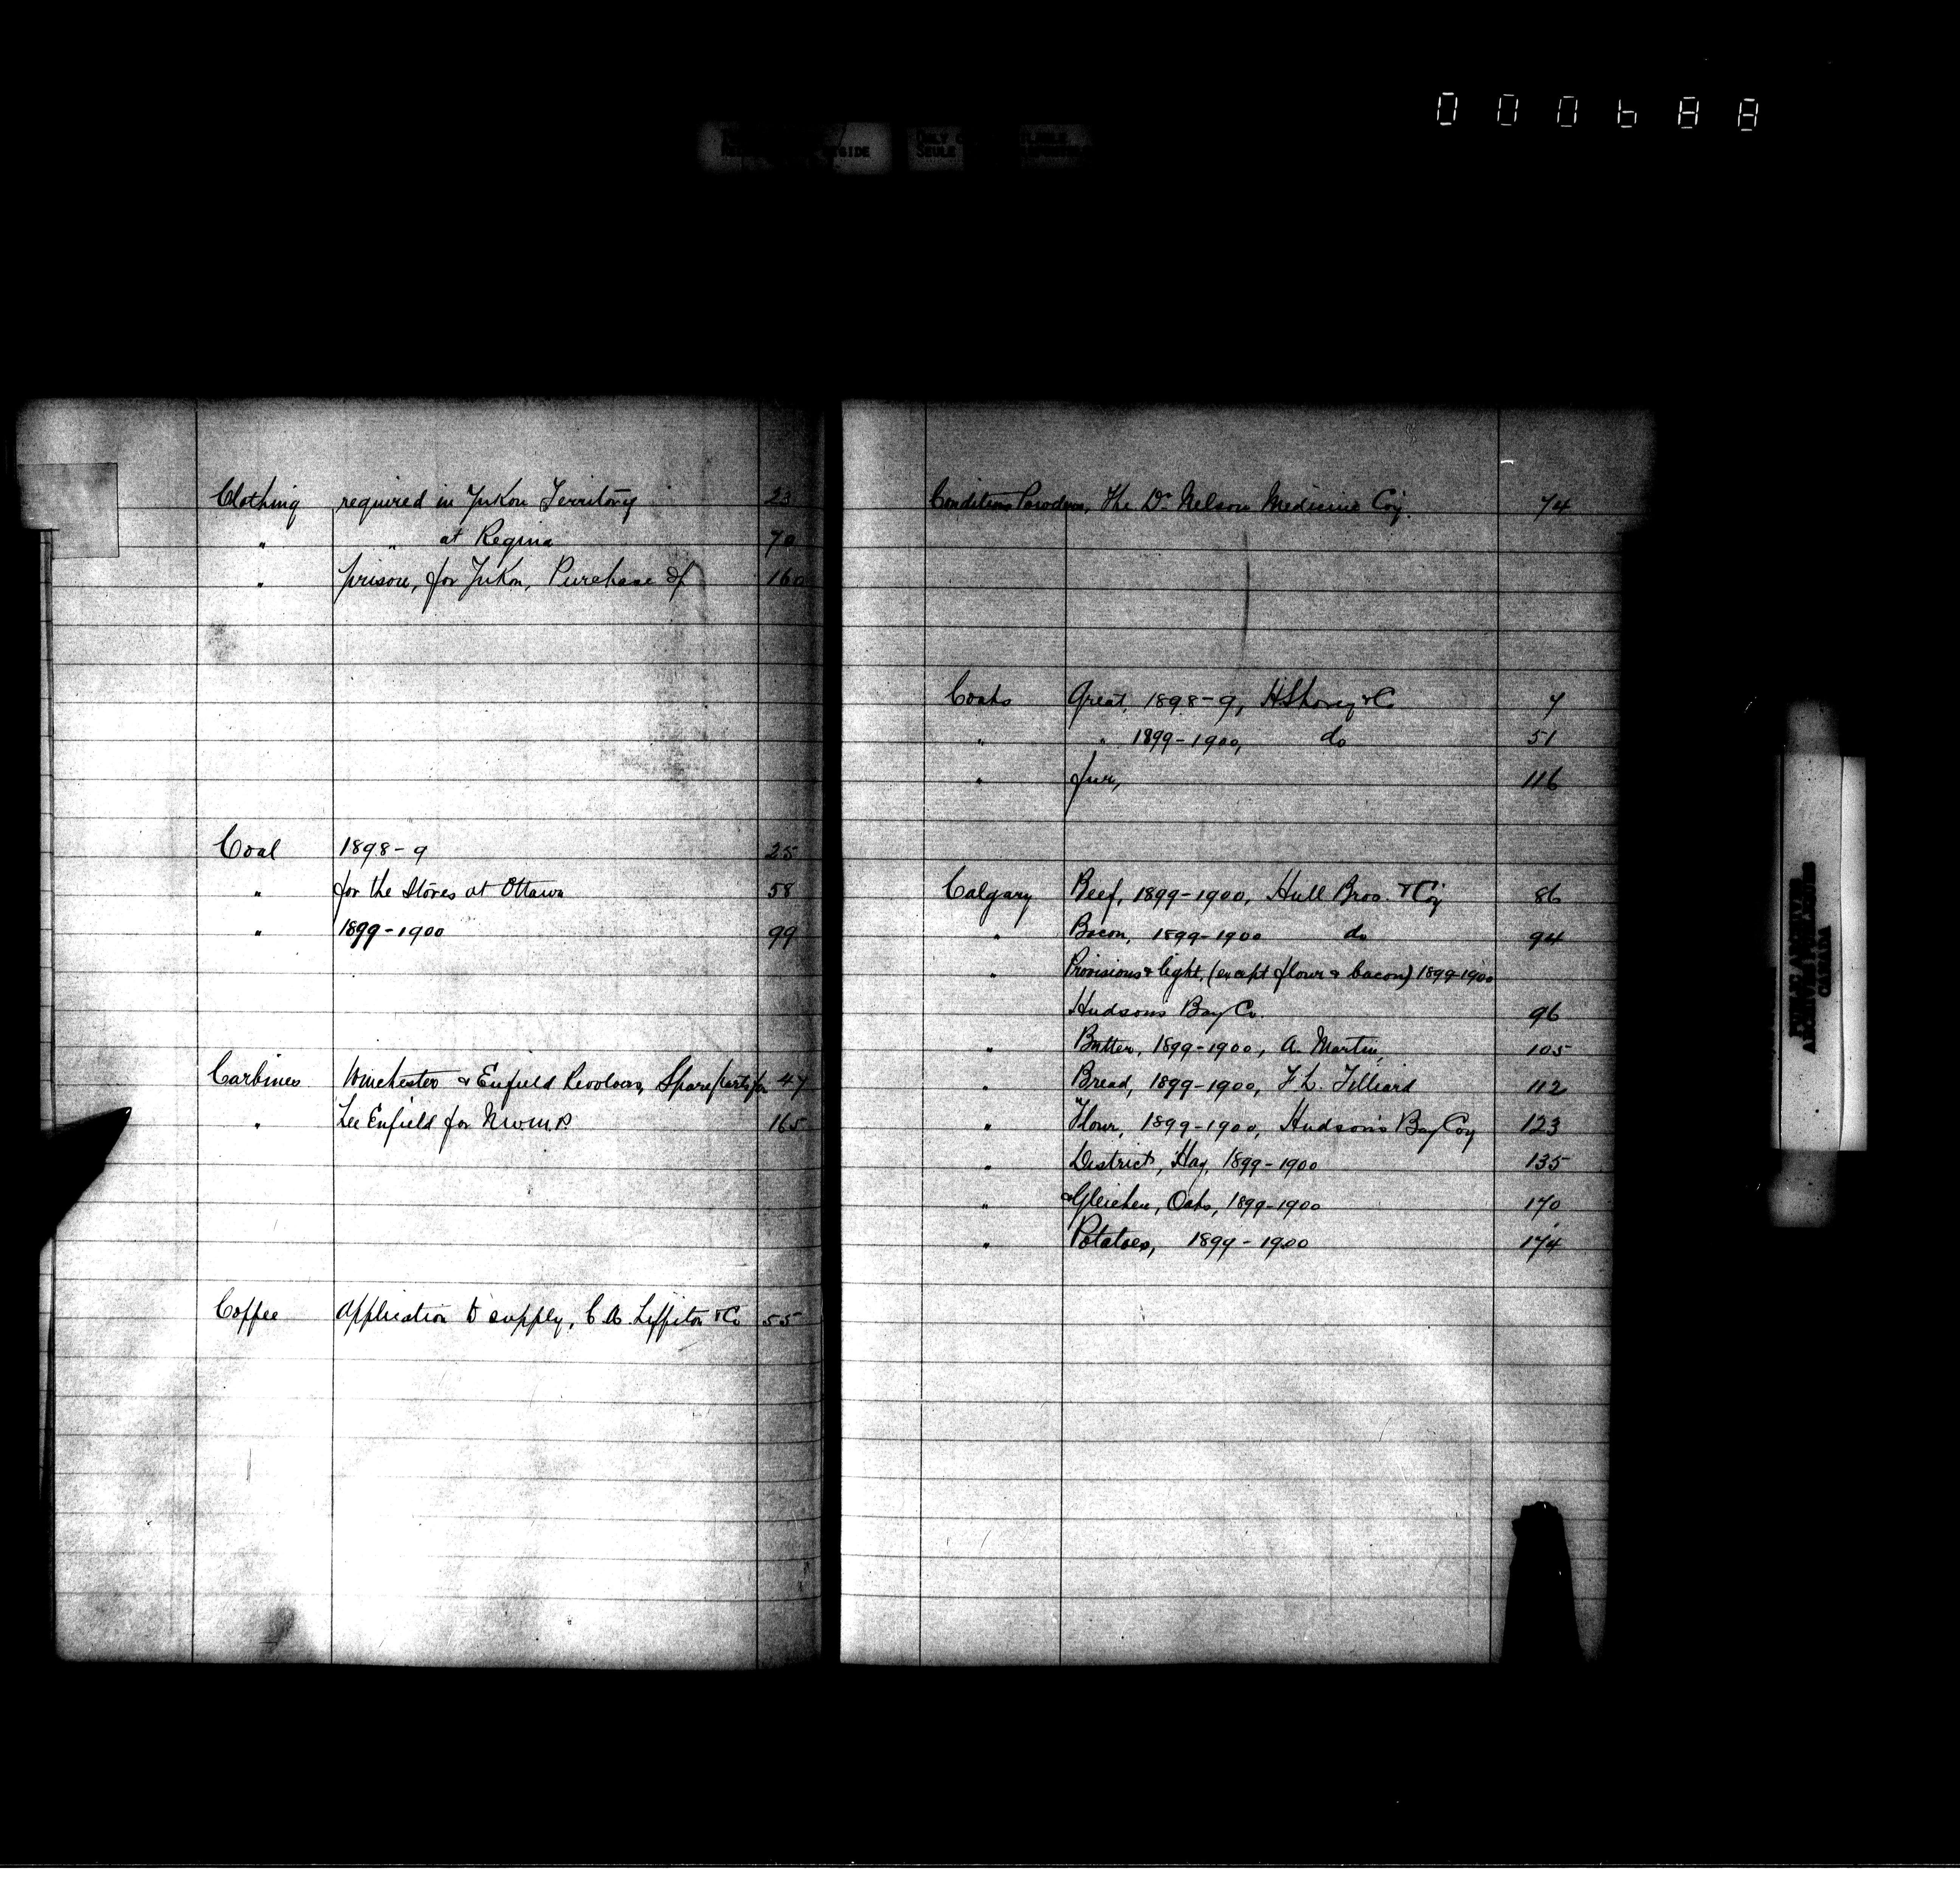 000688
Clothing required in Yukon Territory 23
" " at Regina 70
" prison, for Yukon, Purchase of 160
Coal 1898-9 25
" for the Stores at Ottawa 58
" 1899-1900 99
Carbines Winchester & Enfield Revolvers, Spare parts for 47
" Lee Enfield for N.W.M.P. 165
Coffee Application to supply, C.A. Liffiton & Co 55
Condition Powders, The Dr. Nelson Medicine Coy. 74
Coats Great, 1898-9, H Shorey & Co 7
" " 1899-1900, do 51
" fur, 116
Calgary Beef, 1899-1900, Hull Bros. & Coy 86
" Bacon, 1899-1900 do 94
" Provisions & light, (except flour & bacon) 1899-1900
Hudsons Bay Co. 96
" Butter, 1899-1900, A. Martin, 105
" Bread, 1899-1900, F L. 112
" Flour, 1899-1900, Hudson's Bay Coy 123
" District, Hay, 1899-1900 135
" & Gleichen, Oats, 1899-1900 170
" Potatoes, 1899-1900 174
PUBLIC ARCHIVES
ARCHIVES PUBLIQUES
CANADA